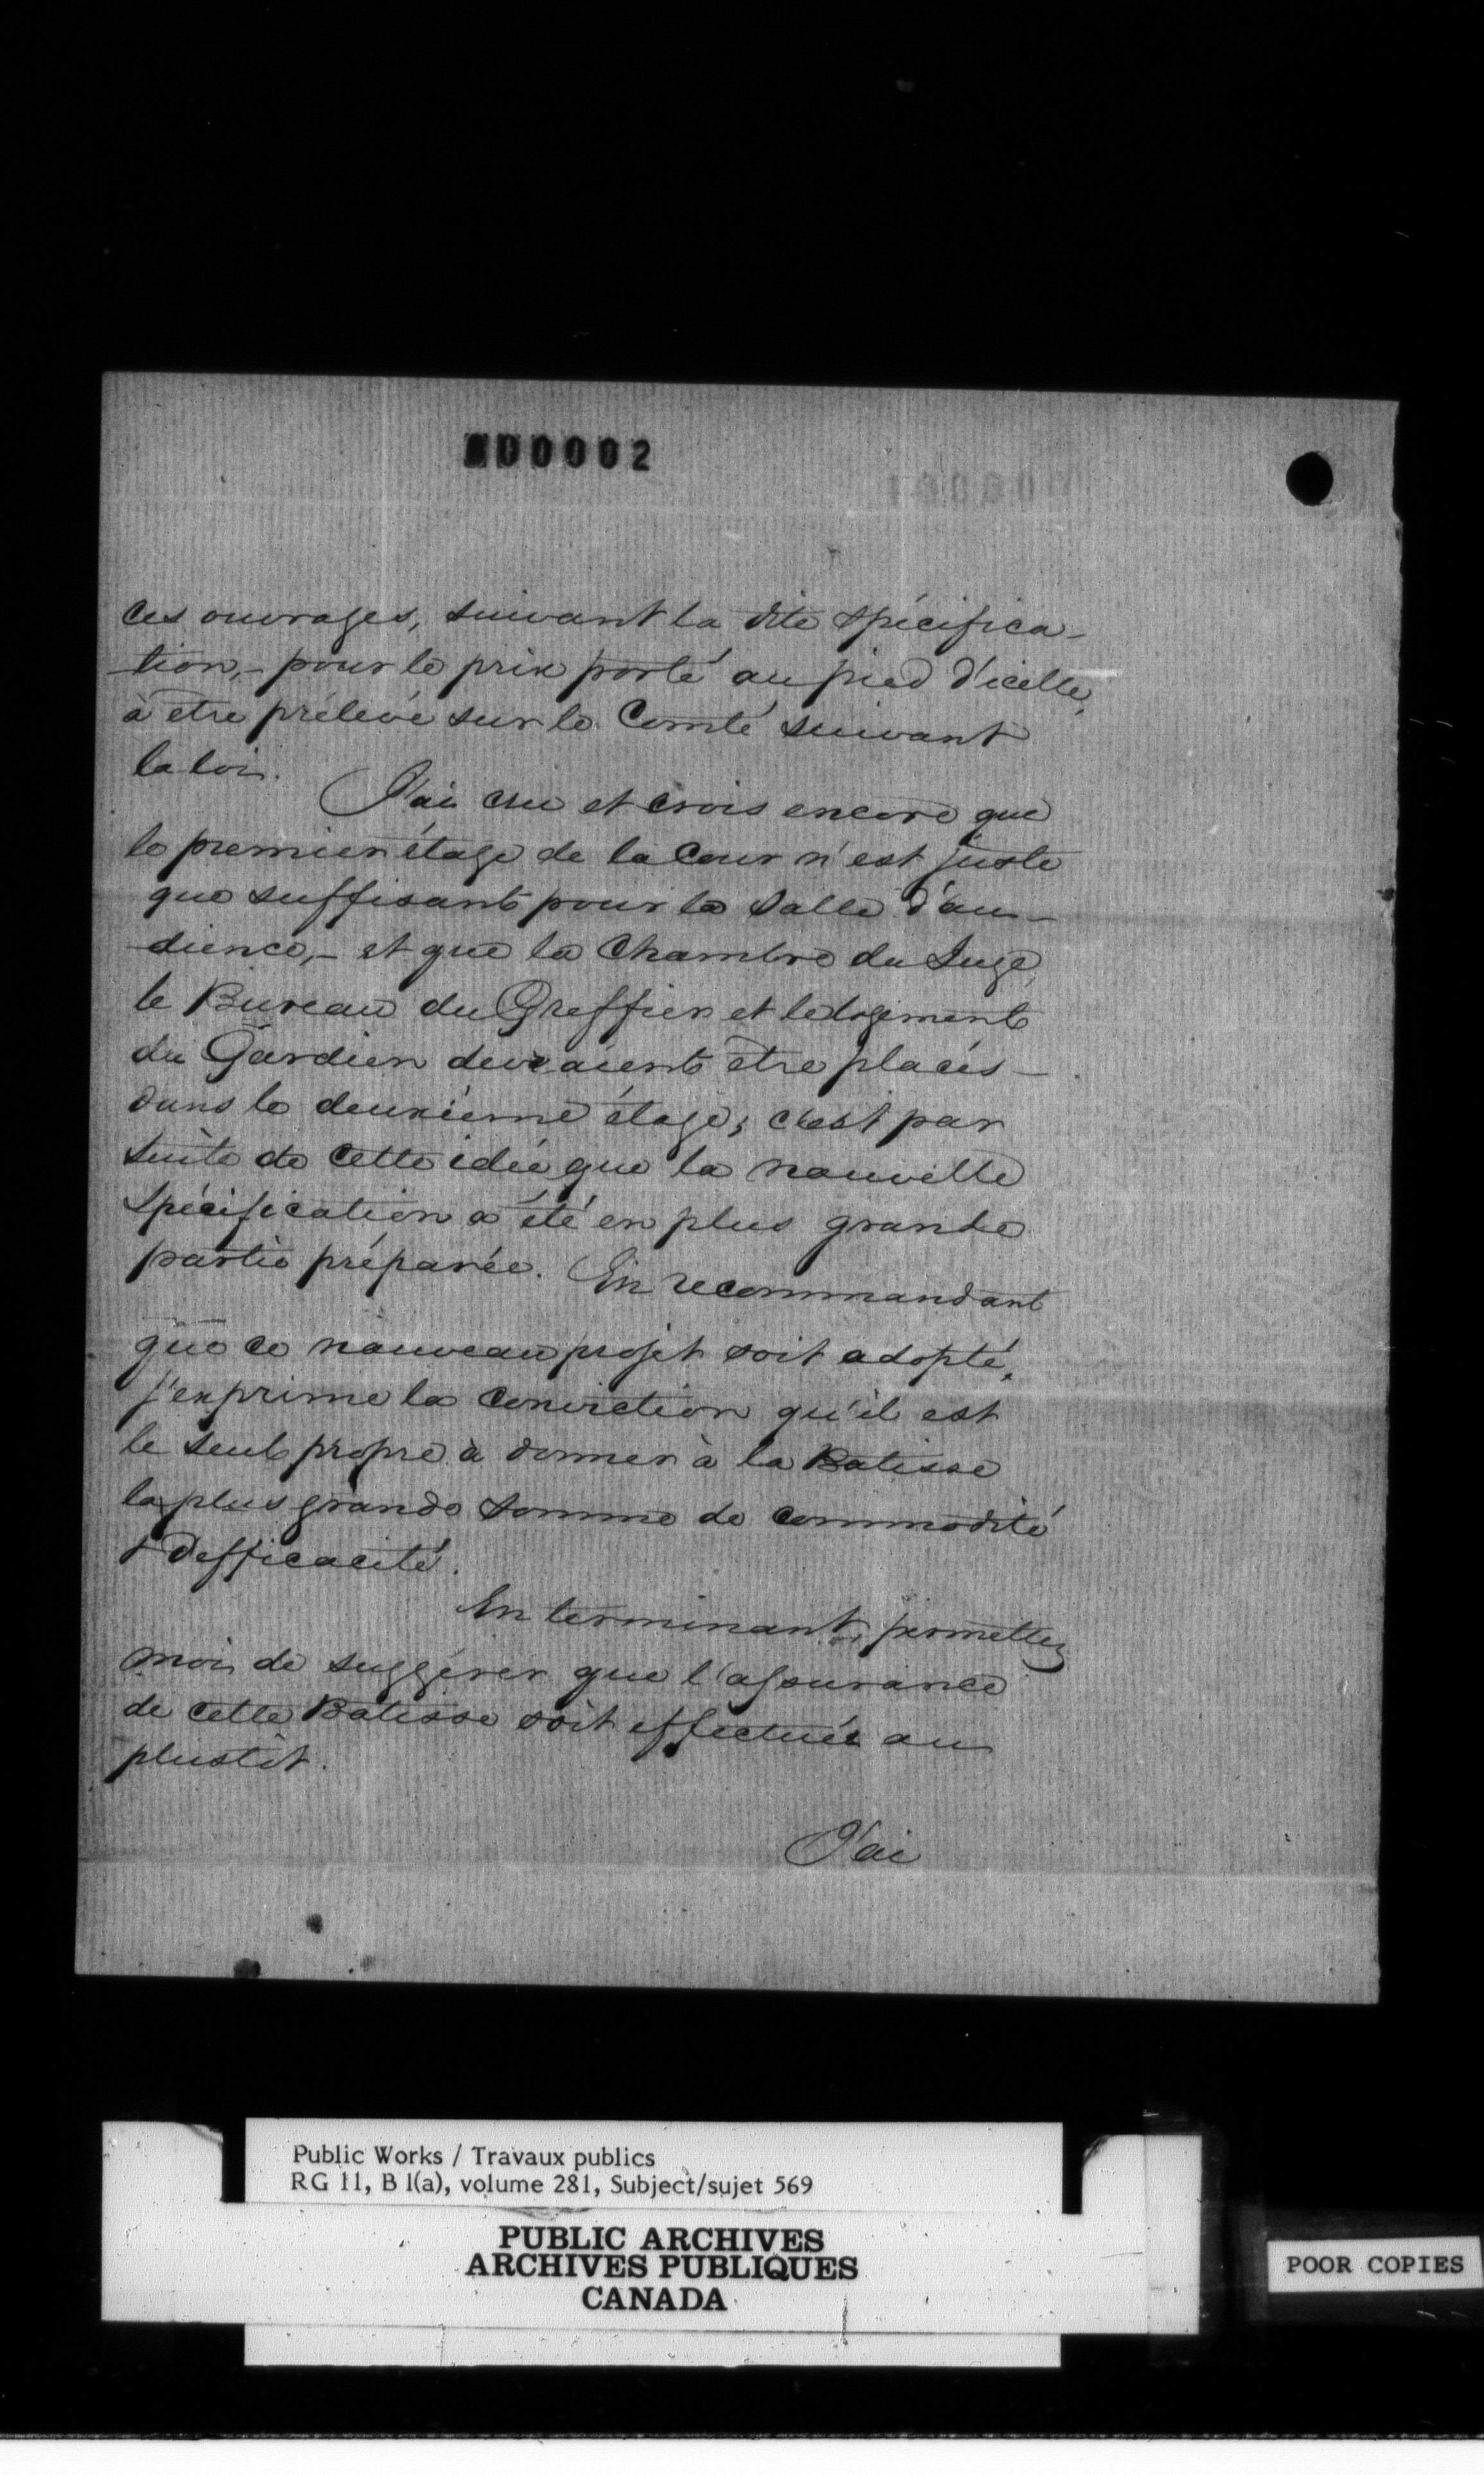 000002
ces ouvrages, suivant la dite spécifica-
tion,- pour le prix porté au pied d'icelle,
à être prélevé sur le Comté suivant
la loi.
J'ai cru et crois encore que
le premier étage de la Cour n'est juste
que suffisant pour la Salle d'au-
dience,- et que la Chambre du Juge,
le Bureau du Greffier et le logement
du Gardien devraient être placés-
dans le deuxième étage; c'est par
suite de cette idée que la nouvelle
Spécification a été en plus grande
partie préparée. En recommandant
que ce nouveau projet soit adopté,
j'exprime la conviction qu'il est
le seul propre à donner à la Batisse
la plus grande somme de commodité
& d'efficacité.
En terminant, permettez
moi de suggérer que l'assurance
de cette Batisse soit effectuée au
plustôt.
J'ai
Public Works / Travaux publics
RG 11, B 1(a), volume 281, Subject/sujet 569
PUBLIC ARCHIVES
ARCHIVES PUBLIQUES
CANADA
POOR COPIES